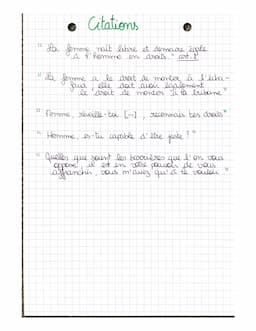 Citations
" La femme naît libre et demeure égale
à l'homme en droits " art.1
" La femme a le droit de monter à l'écha-
faud, elle doit avoir également
le droit de monter à la tribune "
" Femme, réveille-toi [...], reconnais tes droits "
" Homme, es-tu capable d'être juste ? "
" Quelles que soient les barrières que l'on vous
oppose, il est en votre pouvoir de vous
affranchir, vous n'avez qu'à le vouloir "